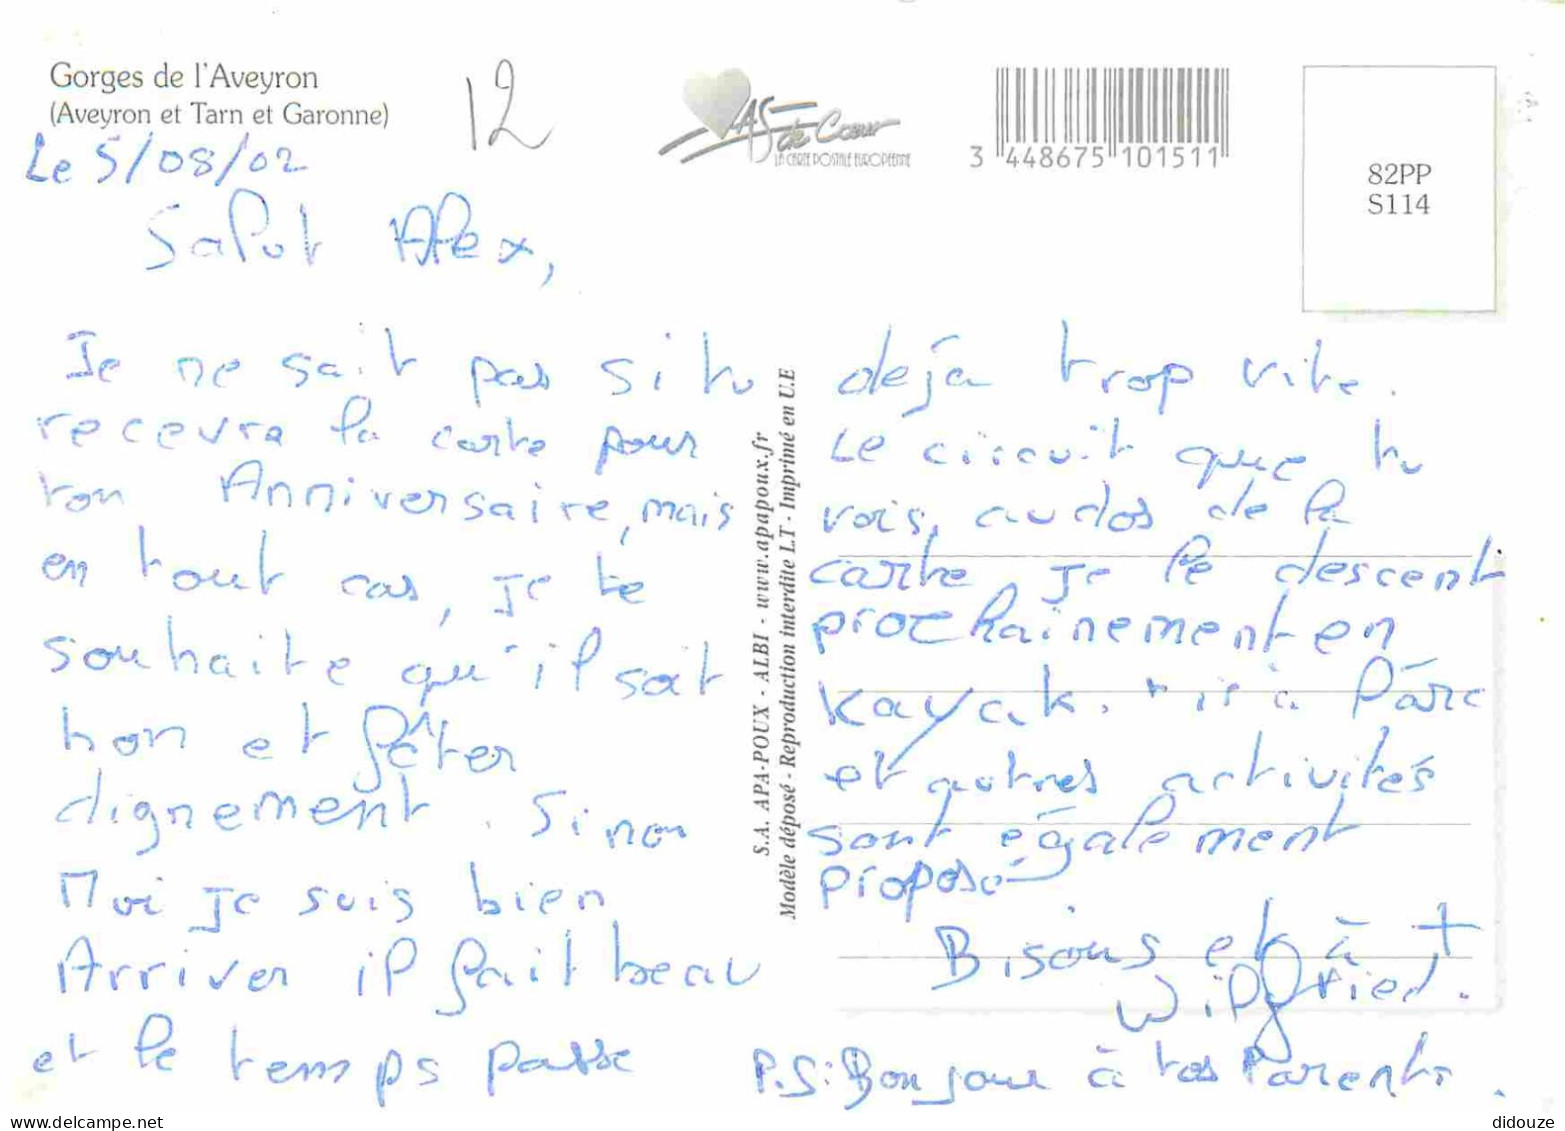 Gorges de l'Aveyron
(Aveyron et Tarn et Garonne)
12
AS de Cœur
LA CARTE POSTALE EUROPEENNE
3 448675 101511
82PP
S114
Le 5/08/02
Salut Alex,
Je ne sait pas si tu
recevra la carte pour
ton Anniversaire, mais
en tout cas, je te
souhaite qu'il soit
bon et fêter
dignement. Sinon
Moi je suis bien
Arriver il fait beau
et le temps passe
S.A. APA-POUX - ALBI - www.apapoux.fr
Modèle déposé - Reproduction interdite LT - Imprimé en U.E
déjà trop vite.
Le circuit que tu
vois, au dos de la
carte je le descent
prochainement en
Kayak. à l'arc
et autres activités
sont également
proposé
Bisous et à +
Wilfried.
P.S: Bonjour à tes Parents.
didouze